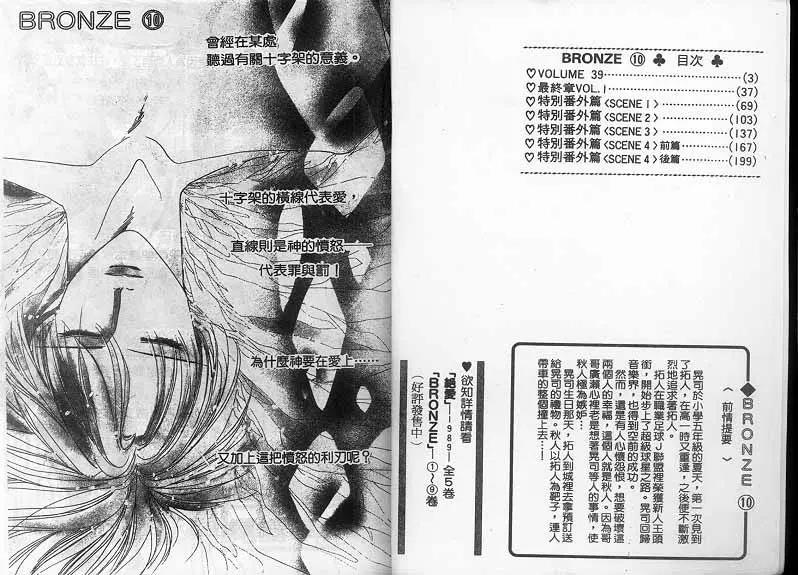 BRONZE ⑩
曾經在某處
聽過有關十字架的意義。
十字架的橫線代表愛，
直線則是神的憤怒——
代表罪與罰！
為什麼神要在愛上……
又加上這把憤怒的利刃呢？
BRONZE ⑩ ♣ 目次 ♣
♡VOLUME 39……(3)
♡最終章VOL.1……(37)
♡特別番外篇〈SCENE 1〉……(69)
♡特別番外篇〈SCENE 2〉……(103)
♡特別番外篇〈SCENE 3〉……(137)
♡特別番外篇〈SCENE 4〉前篇……(167)
♡特別番外篇〈SCENE 4〉後篇……(199)
◆BRONZE ⑩
〈前情提要〉
晃司於小學五年級的夏天，第一次見到
了拓人，在高一時又重逢，之後便不斷激
烈地追求著拓人。
拓人在職業足球J聯盟裡榮獲新人王頭
銜，開始步上了超級球星之路。晃司回歸
音樂界，也得到空前的成功。
然而，還是有人心懷怨恨，想要破壞這
兩個人的幸福，這個人就是秋人。因為哥
哥廣瀨心裡老是想著晃司等人的事情，使
秋人極為嫉妒…
晃司生日那天，拓人到城裡去拿預訂送
給晃司的禮物。秋人以拓人為靶子，連人
帶車的整個撞上去…！
♥欲知詳情請看
「絕愛」—1989—全5卷
「BRONZE」—①～⑨卷
（好評發售中）